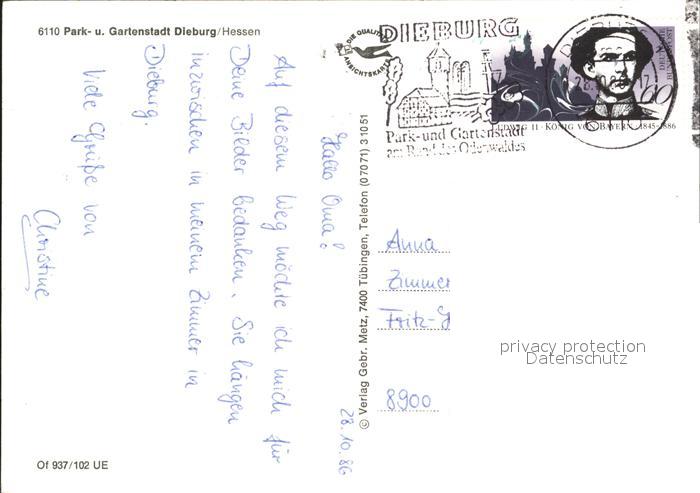 6110 Park- u. Gartenstadt Dieburg/Hessen
DIE QUALITÄTS
ANSICHTSKARTE
DIEBURG
Park-und Gartenstadt
am Rand des Odenwaldes
DIEBURG
28.10.
17
DEUTSCHE
BUNDESPOST
60
LUDWIG II · KÖNIG VON BAYERN · 1845-1886
28.10.86
Hallo Oma!
Auf diesem Weg möchte ich mich für
Deine Bilder bedanken. Sie hängen
inzwischen in meinem Zimmer in
Dieburg.
Viele Grüße von
Christine
© Verlag Gebr. Metz, 7400 Tübingen, Telefon (07071) 31051
Anna
Zimmer
Fritz-
8900
privacy protection
Datenschutz
Of 937/102 UE